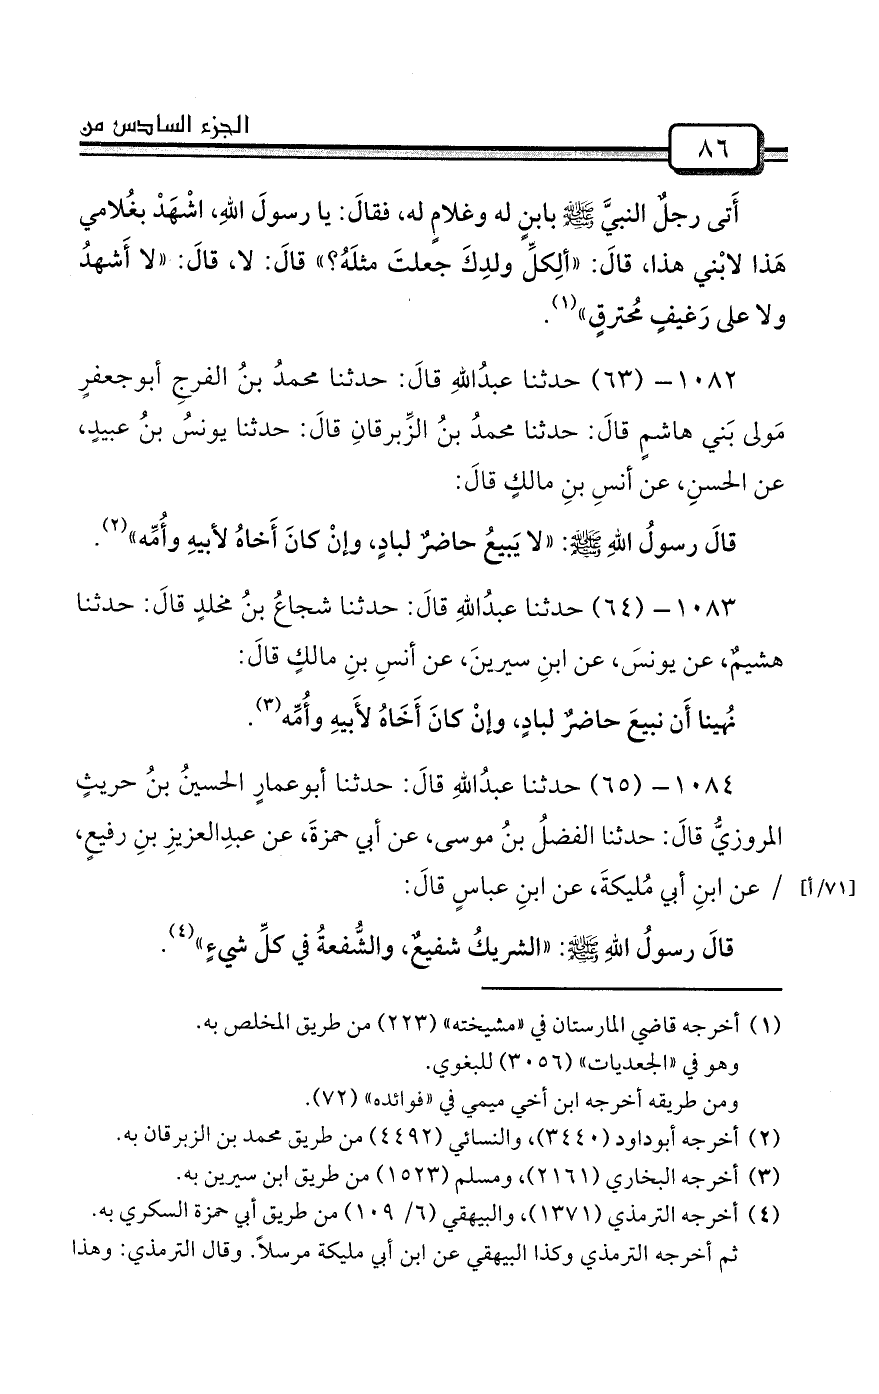 الجزء السادس من
٨٦
أَتى رجلٌ النبيَّ ﷺ بابنٍ له وغلامٍ له، فقالَ: يا رسولَ اللهِ، اشْهَدْ بغُلامي
هَذا لابْني هذا، قالَ: «أَلِكلِّ ولدِكَ جعلتَ مثلَهُ؟» قالَ: لا، قالَ: «لا أَشهدُ
ولا على رَغيفٍ مُحترقٍ»(١).
١٠٨٢ – (٦٣) حدثنا عبدُاللهِ قالَ: حدثنا محمدُ بنُ الفرجِ أبوجعفرٍ
مَولى بَني هاشمٍ قالَ: حدثنا محمدُ بنُ الزِّبرقانِ قالَ: حدثنا يونسُ بنُ عبيدٍ،
عن الحسنِ، عن أنسِ بنِ مالكٍ قالَ:
قالَ رسولُ اللهِ ﷺ: «لا يَبيعُ حاضرٌ لبادٍ، وإنْ كانَ أَخاهُ لأبيهِ وأُمِّه»(٢).
١٠٨٣ – (٦٤) حدثنا عبدُاللهِ قالَ: حدثنا شجاعُ بنُ مخلدٍ قالَ: حدثنا
هشيمٌ، عن يونسَ، عن ابنِ سيرينَ، عن أنسِ بنِ مالكٍ قالَ:
نُهينا أَن نبيعَ حاضرٌ لبادٍ، وإنْ كانَ أَخَاهُ لأَبيهِ وأُمِّه(٣).
١٠٨٤ – (٦٥) حدثنا عبدُاللهِ قالَ: حدثنا أبوعمارٍ الحسينُ بنُ حريثٍ
المروزيُّ قالَ: حدثنا الفضلُ بنُ موسى، عن أبي حمزةَ، عن عبدِالعزيزِ بنِ رفيعٍ،
[٧١/أ] / عن ابنِ أبي مُليكةَ، عن ابنِ عباسٍ قالَ:
قالَ رسولُ اللهِ ﷺ: «الشريكُ شفيعٌ، والشُّفعةُ في كلِّ شيءٍ»(٤).
(١) أخرجه قاضي المارستان في «مشيخته» (٢٢٣) من طريق المخلص به.
وهو في «الجعديات» (٣٠٥٦) للبغوي.
ومن طريقه أخرجه ابن أخي ميمي في «فوائده» (٧٢).
(٢) أخرجه أبوداود (٣٤٤٠)، والنسائي (٤٤٩٢) من طريق محمد بن الزبرقان به.
(٣) أخرجه البخاري (٢١٦١)، ومسلم (١٥٢٣) من طريق ابن سيرين به.
(٤) أخرجه الترمذي (١٣٧١)، والبيهقي (٦/ ١٠٩) من طريق أبي حمزة السكري به.
ثم أخرجه الترمذي وكذا البيهقي عن ابن أبي مليكة مرسلاً. وقال الترمذي: وهذا